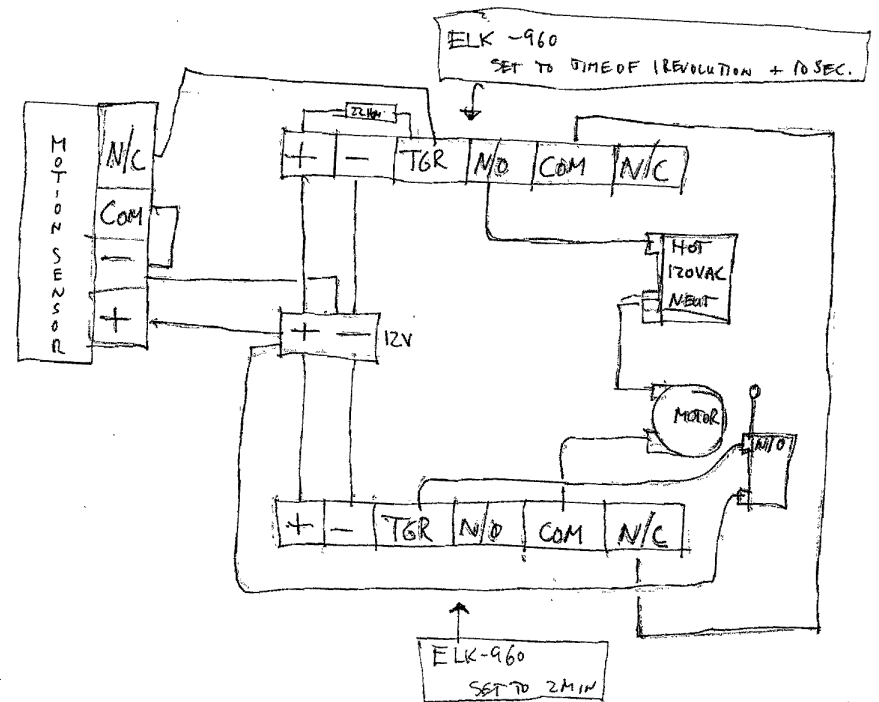 ELK-960
SET TO TIME OF 1 REVOLUTION + 10 SEC.
MOTION SENSOR
N/C
COM
—
+
+ — TGR N/O COM N/C
HOT
120VAC
NEUT
+ — 12V
MOTOR
N/O
+ — TGR N/O COM N/C
ELK-960
SET TO 2MIN